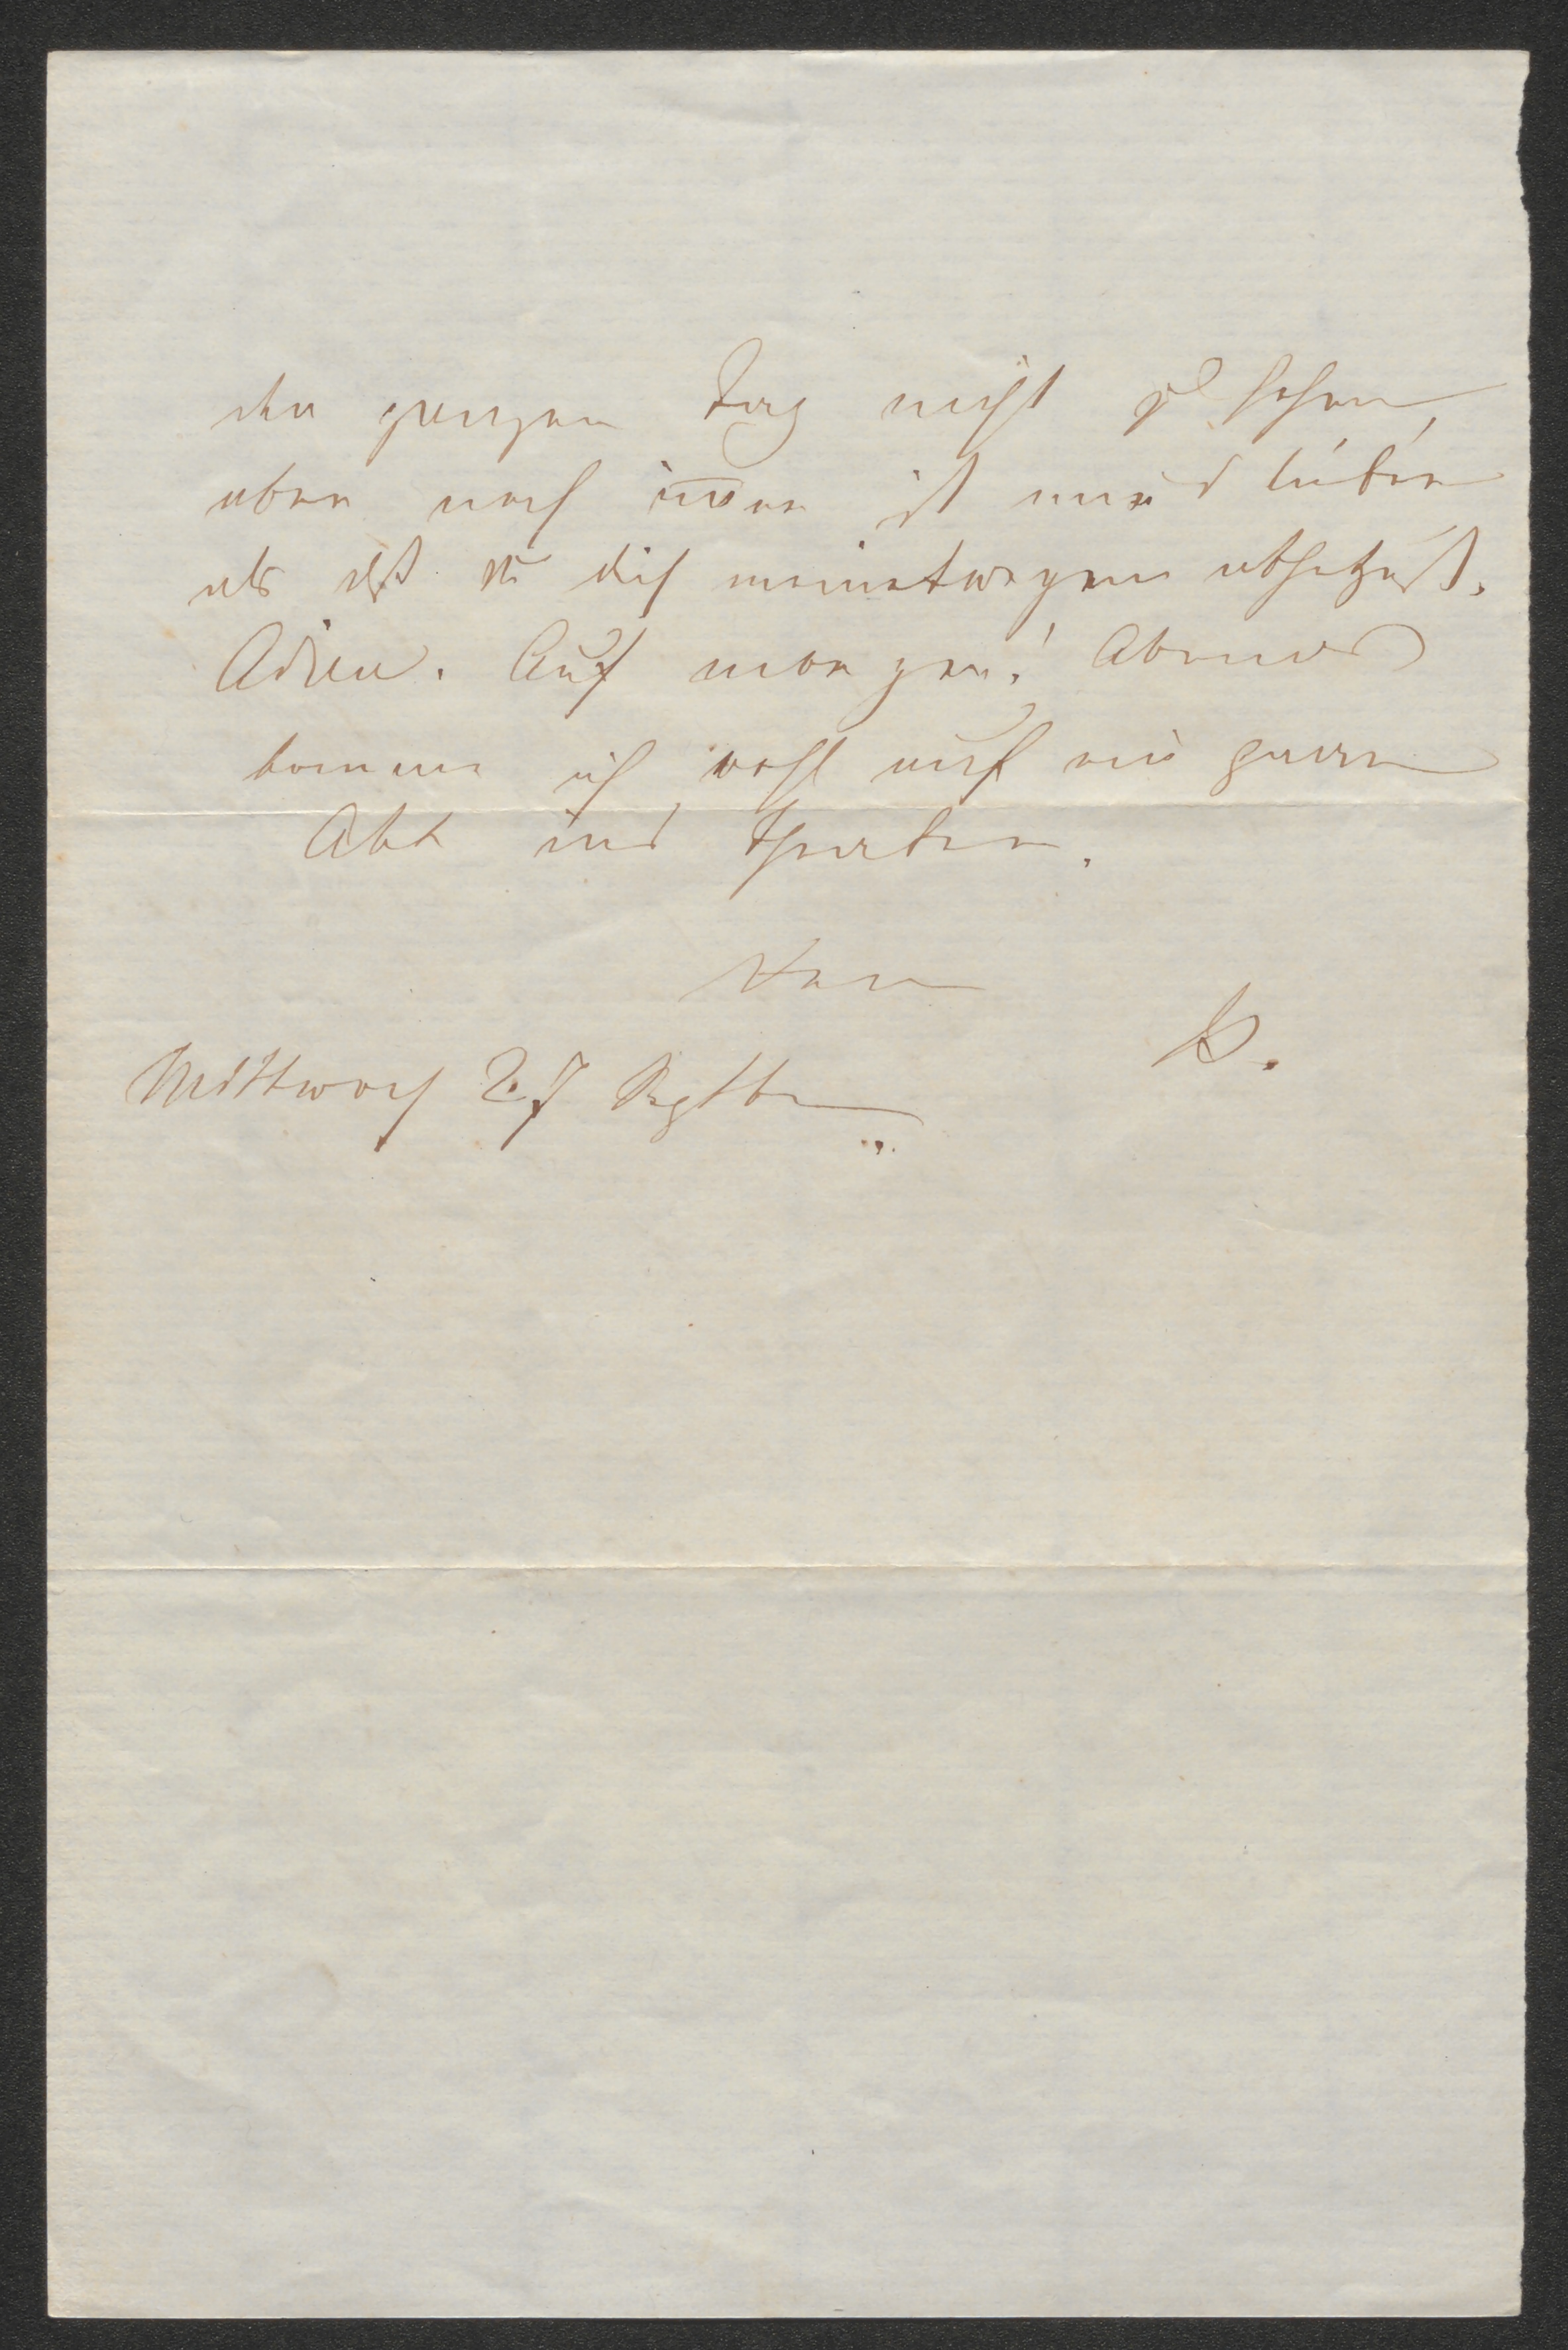 den ganzen Tag nicht gesehen,
aber noch im̅er ist mir's lieber
als daß du dich meinetwegen abhetzest.
Adieu. Auf morgen! Abends
komme ich wohl auf ein paar
Akt ins Theater.
Dein
P.
Mittwoch 27 Septbr